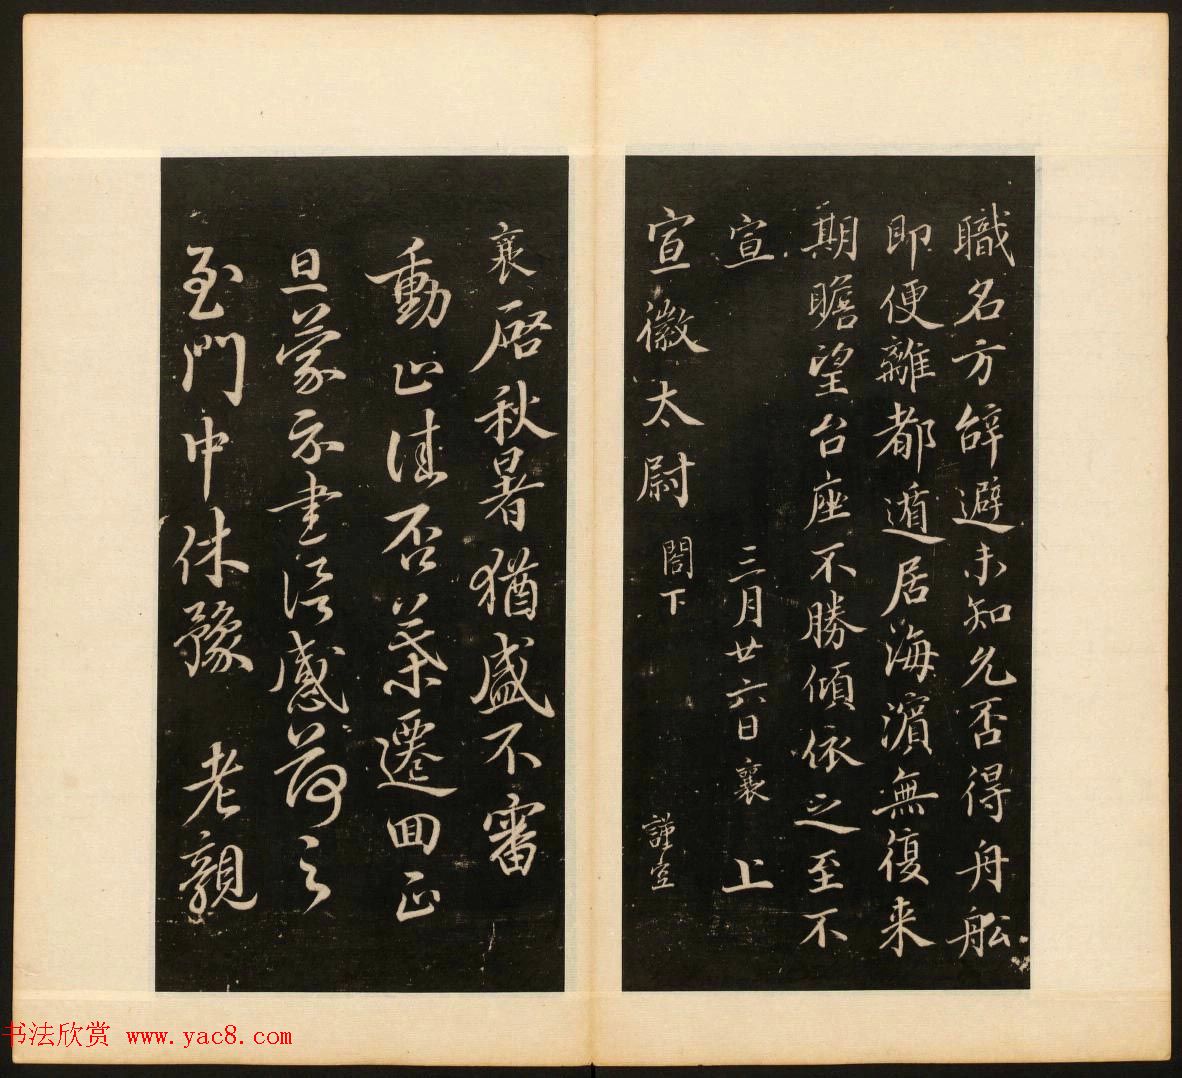 職名方辞避未知允否得舟舩
即便離都遁居海濱無復来
期瞻望台座不勝傾依之至不
宣 三月廿六日襄 上
宣徽太尉 閤下 謹空
襄啓秋暑猶盛不審
動止佳否葉遷回正
旦蒙示書誨感荷之
至門中休豫 老親
书法欣赏 www.yac8.com